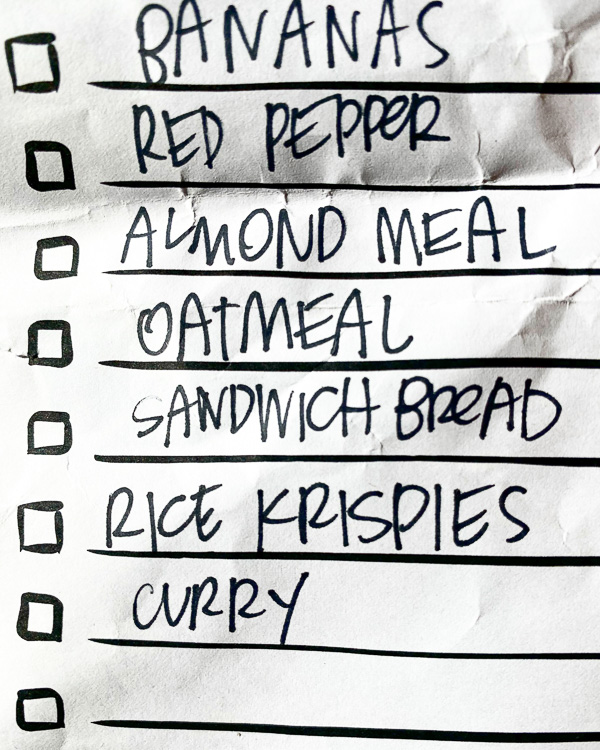 BANANAS
RED PEPPER
ALMOND MEAL
OATMEAL
SANDWICH BREAD
RICE KRISPIES
CURRY